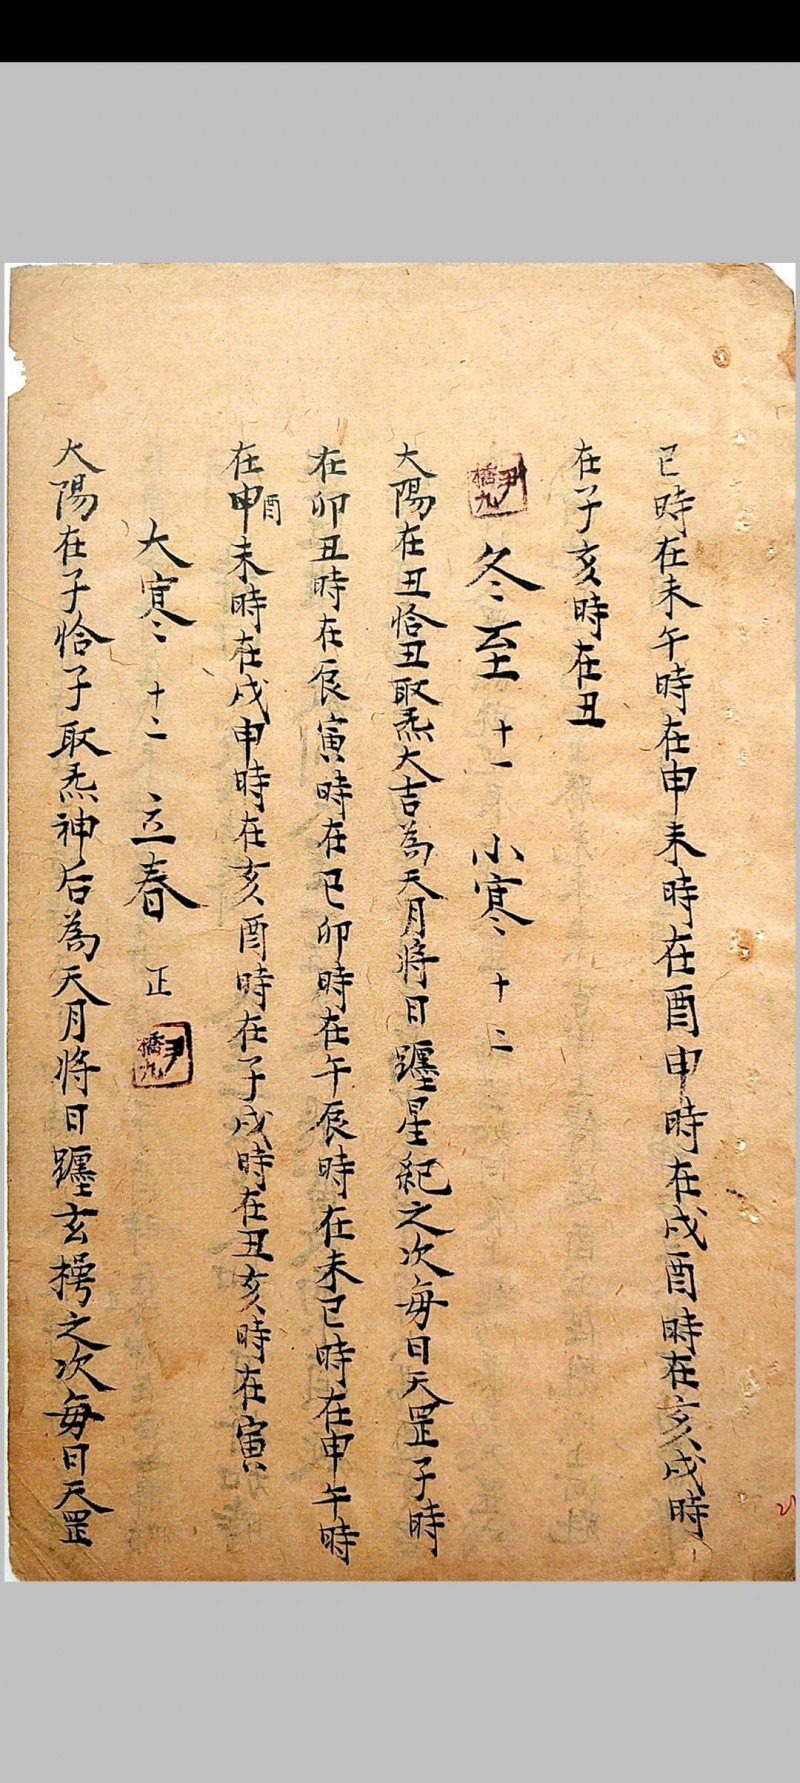 巳時在未午時在申未時在酉申時在戌酉時在亥戌時
在子亥時在丑
尹橋九 冬至 十一 小寒 十二
太陽在丑恰丑取炁大吉為天月將日躔星紀之次每日天罡子時
在卯丑時在辰寅時在巳卯時在午辰時在未巳時在申午時
在申酉未時在戌申時在亥酉時在子戌時在丑亥時在寅
大寒 十二 立春 正 尹橋九
太陽在子恰子取炁神后為天月將日躔玄枵之次每日天罡